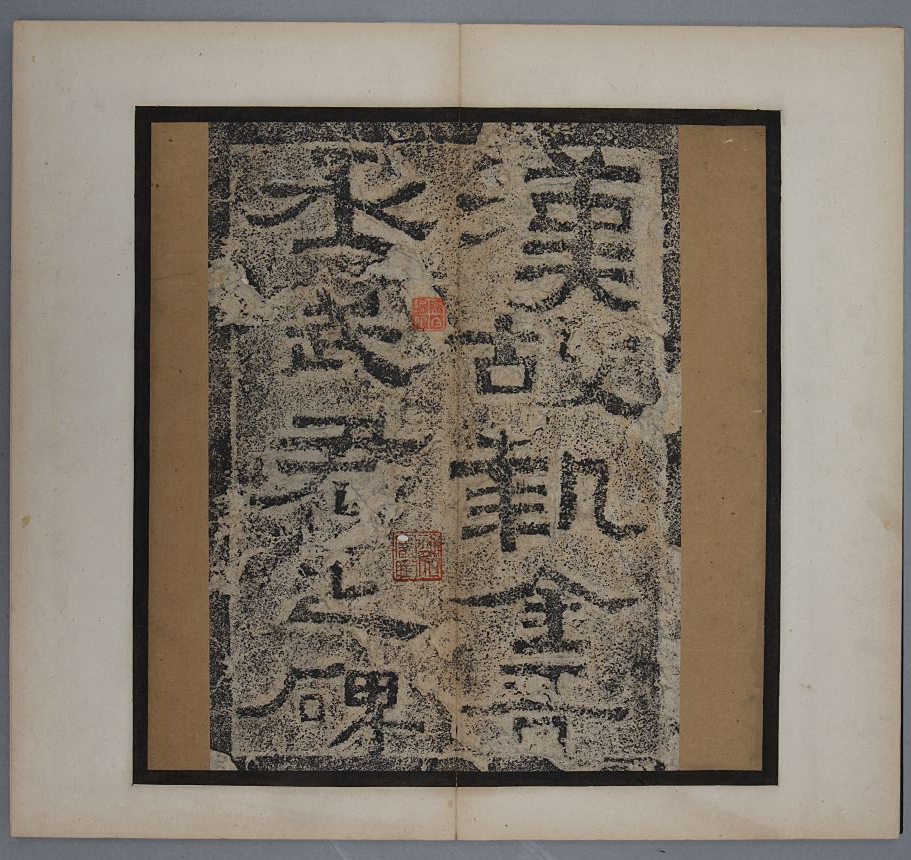 漢故執金吾
丞武君之碑